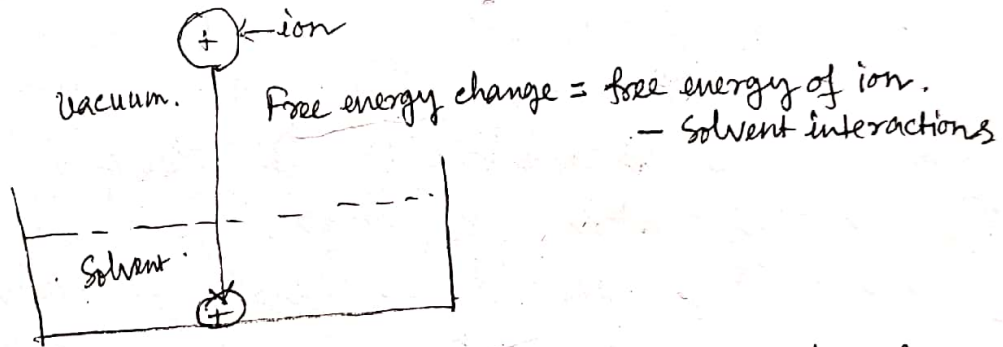 +
←ion
Vacuum.
Free energy change = free energy of ion.
- Solvent interactions
Solvent
+